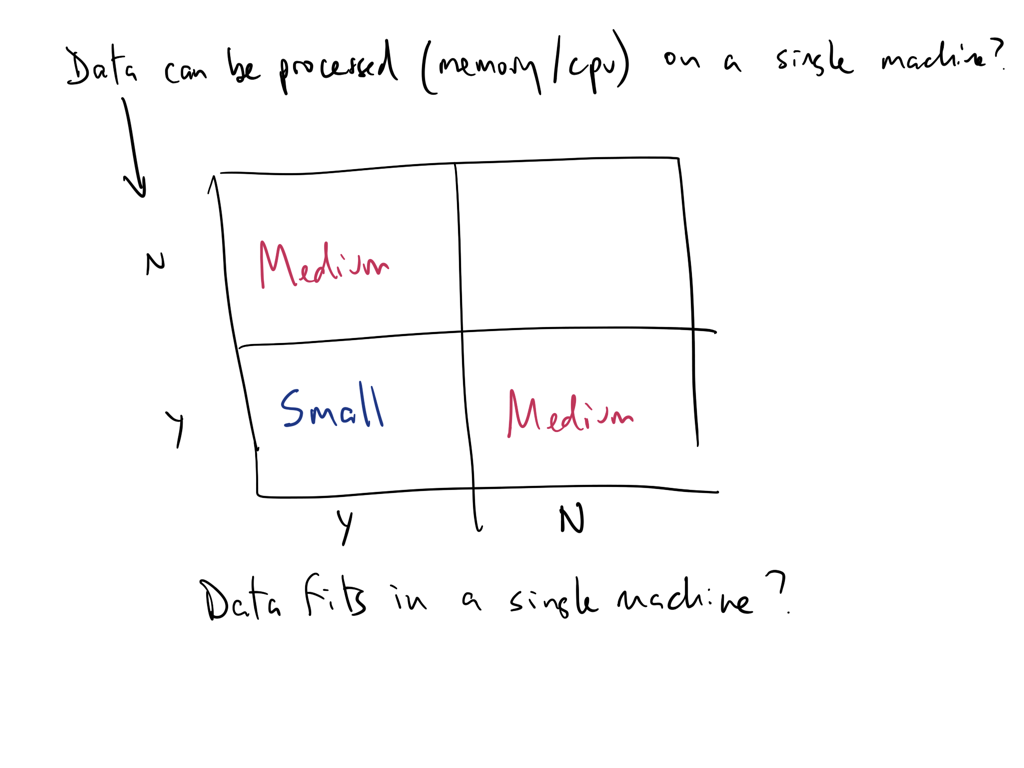 Data can be processed (memory/cpu) on a single machine?
N
Medium
Y
Small
Medium
Y
N
Data fits in a single machine?